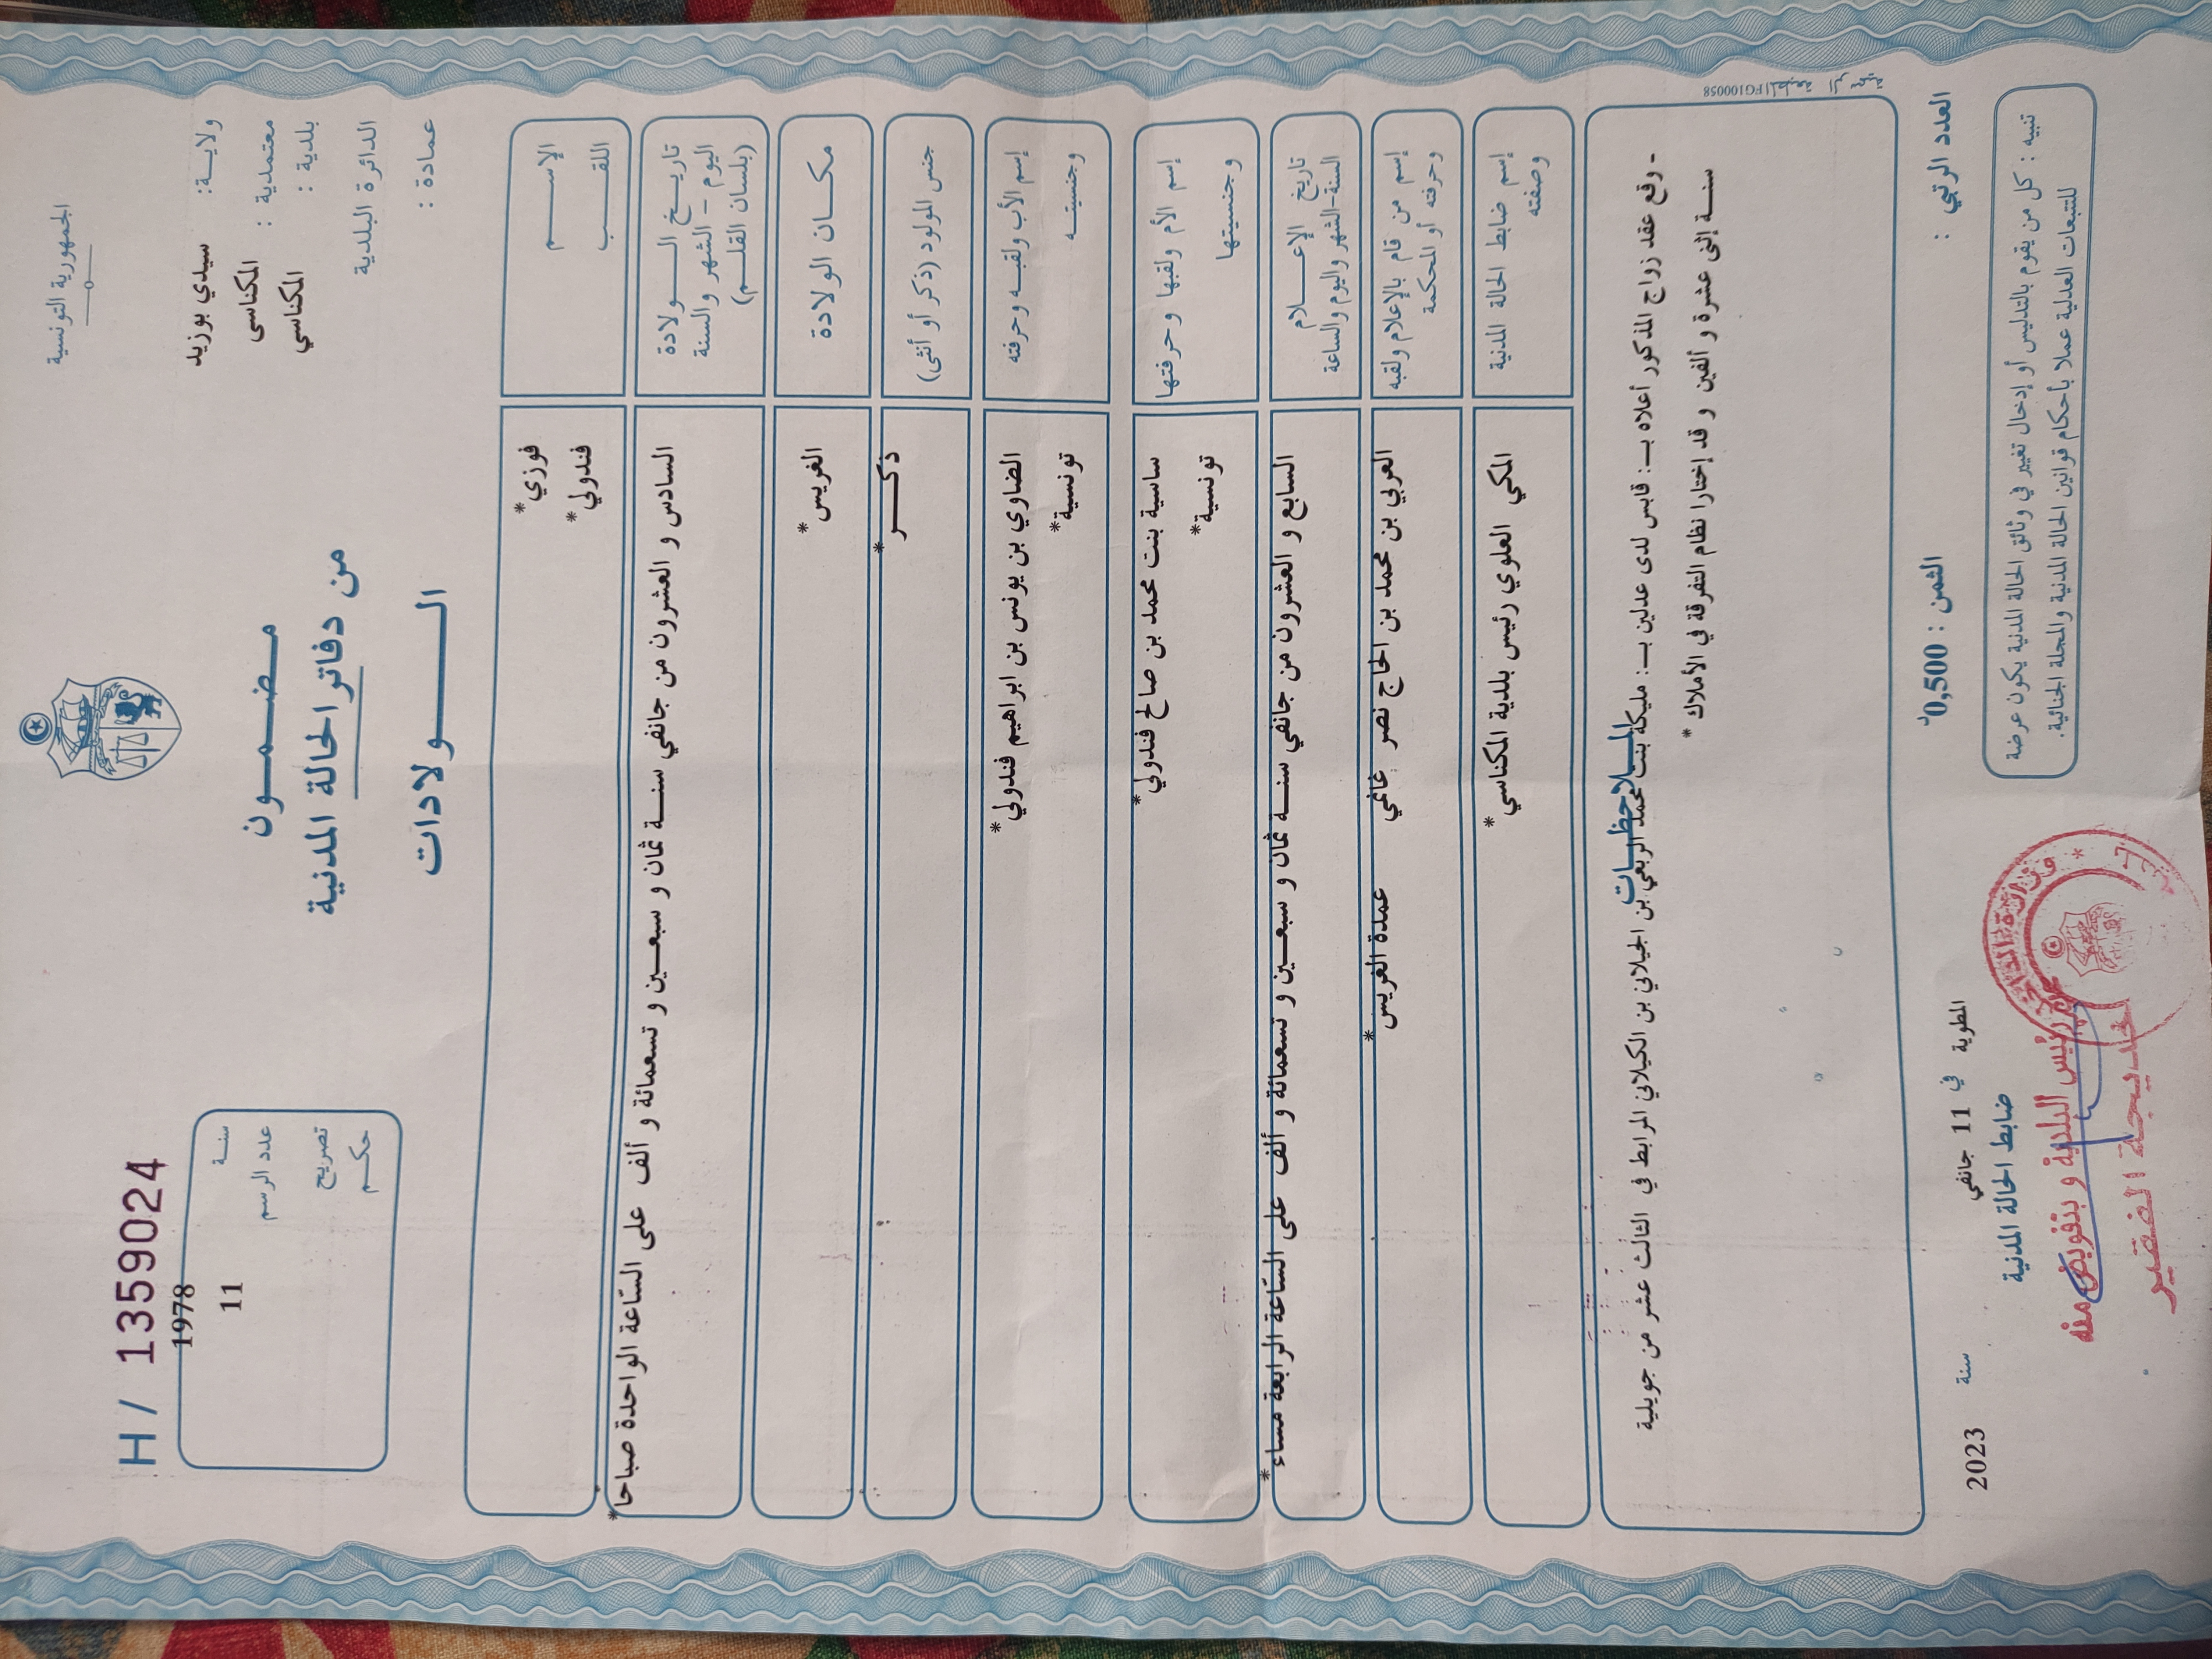 الجمهورية التونسية
H / 1359024
ولاية: سيدي بوزيد
معتمدية : المكناسى
بلدية : المكناسي
الدائرة البلدية
عمادة :
مضمون
من دفاتر الحالة المدنية
الولادات
سنة 1978
عدد الرسم 11
تصريح
حكم
الإسم فوزي*
اللقب فندولي*
تاريخ الولادة
اليوم - الشهر والسنة
(بلسان القلم)
السادس و العشرون من جانفي سنة ثمان و سبعين و تسعمائة و ألف على السّاعة الواحدة صباحا*
مكان الولادة الغريس*
جنس المولود (ذكر أو أنثى) ذكر*
إسم الأب ولقبه وحرفته الضاوي بن يونس بن ابراهيم فندولي*
وجنسيته تونسية*
إسم الأم ولقبها وحرفتها ساسية بنت محمد بن صالح فندولي*
وجنسيتها تونسية*
تاريخ الإعلام
السنة-الشهر واليوم والساعة
السابع و العشرون من جانفي سنة ثمان و سبعين و تسعمائة و ألف على السّاعة الرابعة مساء*
إسم من قام بالإعلام ولقبه
وحرفته أو المحكمة
العربي بن محمد بن الحاج نصر غانمي عمدة الغريس*
إسم ضابط الحالة المدنية
وصفته
المكي العلوي رئيس بلدية المكناسي*
الملاحظات
- وقع عقد زواج المذكور أعلاه بـ: قابس لدى عدلين بـ: مليكة بنت محمد الربعي بن الجيلاني بن الكيلاني المرابط في الثالث عشر من جويلية
سنة إثنى عشرة و ألفين و قد إختارا نظام التفرقة في الأملاك *
FG100058
العدد الرتبي :
الثمن : 0,500د
المطوية في 11 جانفي سنة 2023
ضابط الحالة المدنية
تنبيه : كل من يقوم بالتدليس أو إدخال تغيير في وثائق الحالة المدنية يكون عرضة
للتتبعات العدلية عملا بأحكام قوانين الحالة المدنية والمجلة الجنائية.
رئيس البلدية و بتفويض منه
خديجة الفقير